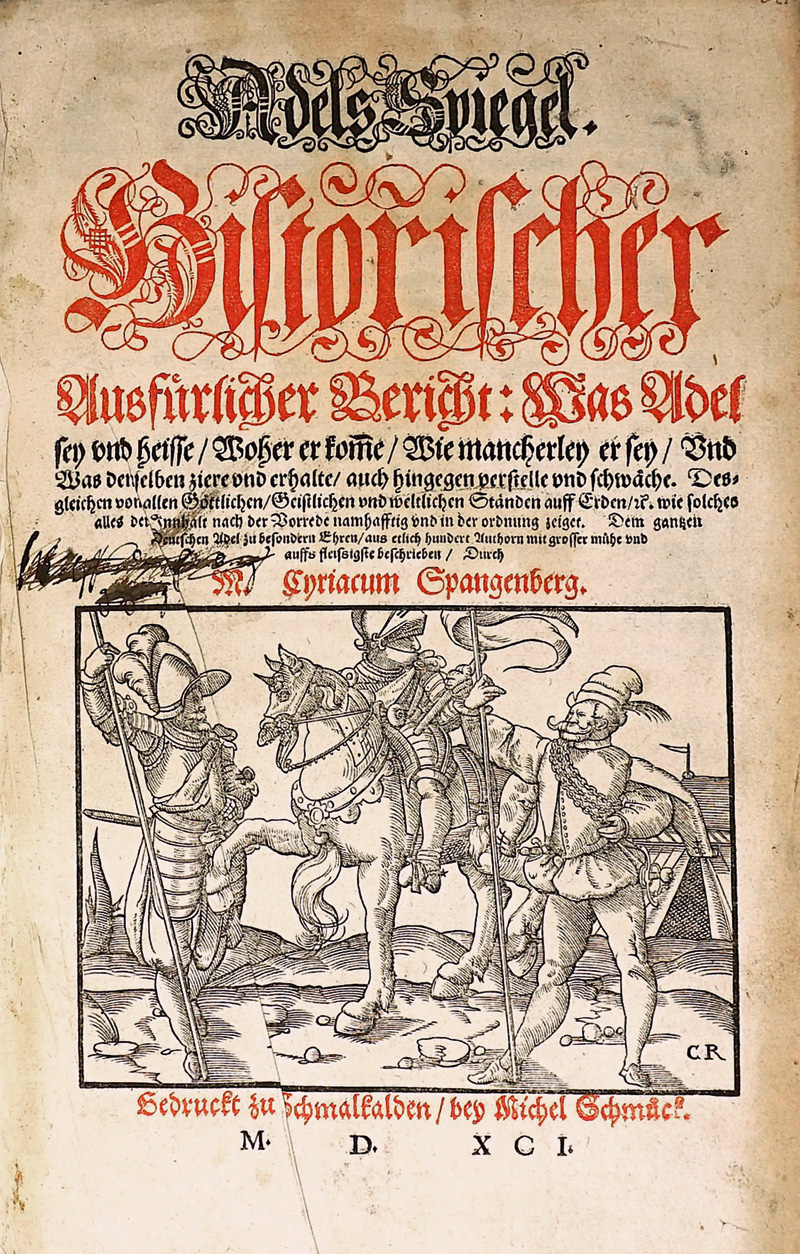 Adels Spiegel.
Historischer
Ausfürlicher Bericht: Was Adel
sey vnd heisse / Woher er kom̃e / Wie mancherley er sey / Vnd
Was denselben ziere vnd erhalte / auch hingegen verstelle vnd schwäche. Des⸗
gleichen von allen Göttlichen / Geistlichen vnd weltlichen Ständen auff Erden / ꝛc. wie solches
alles der Innhalt nach der Vorrede namhafftig vnd in der ordnung zeiget. Dem gantzen
Deutschen Adel zu besondern Ehren / aus etlich hundert Authorn mit grosser mühe vnd
auffs fleissigste beschrieben / Durch
M. Cyriacum Spangenberg.
CR
Gedruckt zu Schmalkalden / bey Michel Schmück.
M. D. XCI.